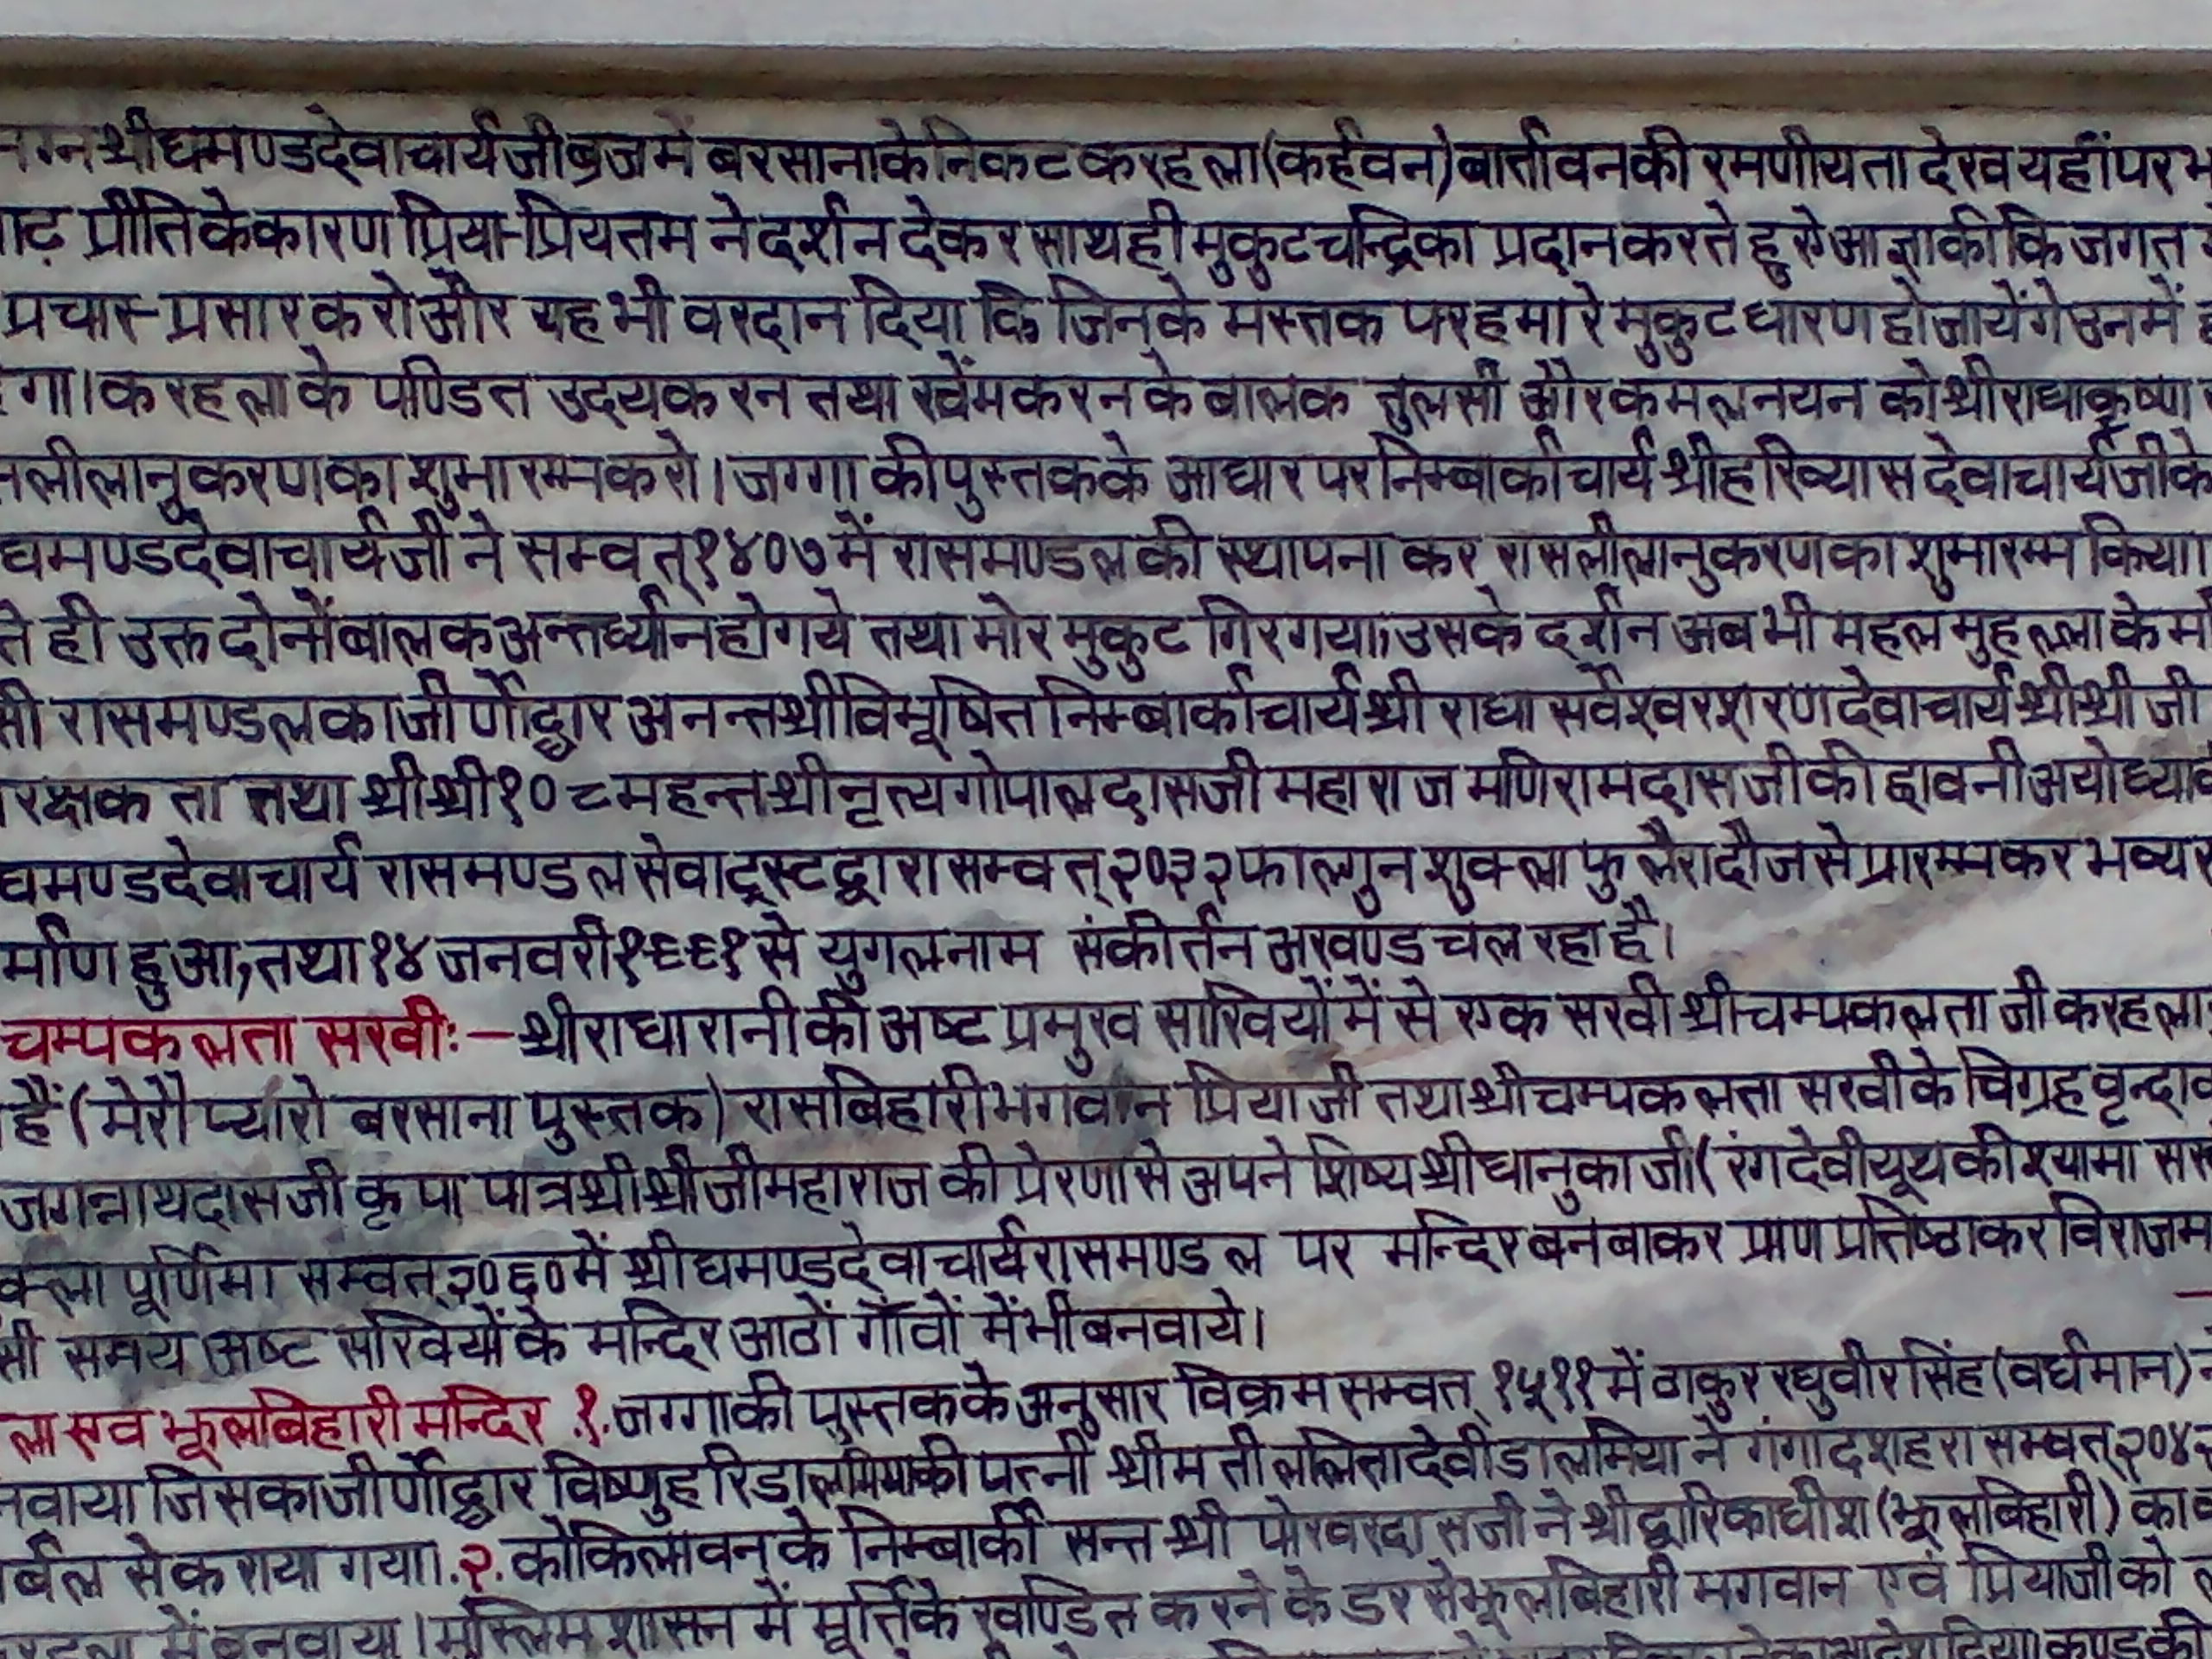 मग्न श्रीघमण्डदेवाचार्य जी ब्रज में बरसाना के निकट करहला (कर्हवन) बार्तावन की रमणीयता देख यहीं पर
प्रीति के कारण प्रिया-प्रियतम ने दर्शन देकर साथ ही मुकुट चन्द्रिका प्रदान करते हुऐ आज्ञा की कि जगत
प्रचार-प्रसार करो और यह भी वरदान दिया कि जिनके मस्तक पर हमारे मुकुट धारण हो जायेंगे उनमें
गा। करहला के पण्डित उदयकरन तथा खेंमकरन के बालक तुलसी और कमलनयन को श्रीराधाकृष्ण
लीलानुकरण का शुभारम्भ करो। जग्गा की पुस्तक के आधार पर निम्बार्काचार्य श्रीहरिव्यास देवाचार्य जी के
घमण्डदेवाचार्य जी ने सम्वत् १४०७ में रासमण्डल की स्थापना कर रासलीलानुकरण का शुभारम्भ किया।
ते ही उक्त दोनों बालक अन्तर्ध्यान हो गये तथा मोर मुकुट गिर गया, उसके दर्शन अब भी महल मुहल्ला के
सी रासमण्डल का जीर्णोद्धार अनन्त श्रीविभूषित निम्बार्काचार्य श्री राधा सर्वेश्वरशरण देवाचार्य श्री श्री जी
रक्षकता तथा श्री श्री १०८ महन्त श्रीनृत्यगोपालदास जी महाराज मणिरामदास जी की छावनी अयोध्या
घमण्डदेवाचार्य रासमण्डल सेवा ट्रस्ट द्वारा सम्वत् २०३२ फाल्गुन शुक्ला फुलैरा दौज से प्रारम्भ कर भव्य
र्माण हुआ, तथा १४ जनवरी १९९१ से युगलनाम संकीर्तन अखण्ड चल रहा है।
चम्पकलता सखीः- श्रीराधारानी की अष्ट प्रमुख सखियों में से एक सखी श्री चम्पकलता जी करहला
हैं (मेरौ प्यारो बरसाना पुस्तक) रासबिहारी भगवान प्रिया जी तथा श्री चम्पकलता सखी के विग्रह
जगन्नाथदास जी कृपा पात्र श्री श्रीजी महाराज की प्रेरणा से अपने शिष्य श्री धानुका जी (रंगदेवी यूथ की श्यामा
क्ला पूर्णिमा सम्वत् २०६० में श्री घमण्डदेवाचार्य रासमण्डल पर मन्दिर बनबाकर प्राण प्रतिष्ठा कर
सी समय अष्ट सखियों के मन्दिर आठों गाँवों में भी बनवाये।
ला एवं झूलबिहारी मन्दिर .१. जग्गा की पुस्तक के अनुसार विक्रम सम्वत् १५११ में ठाकुर रघुवीर सिंह (वर्धमान)
नवाया जिसका जीर्णोद्धार विष्णुहरि डालमिया की पत्नी श्रीमती ललितादेवी डालमिया ने गंगादशहरा सम्वत्
र्बल से कराया गया। .२. कोकिलावन के निम्बार्की सन्त श्री पोखरदास जी ने श्री द्वारिकाधीश (झूलबिहारी) का
में बनवाया। मुस्लिम शासन में मूर्ति के खण्डित करने के डर से झूलबिहारी भगवान एवं प्रियाजी को